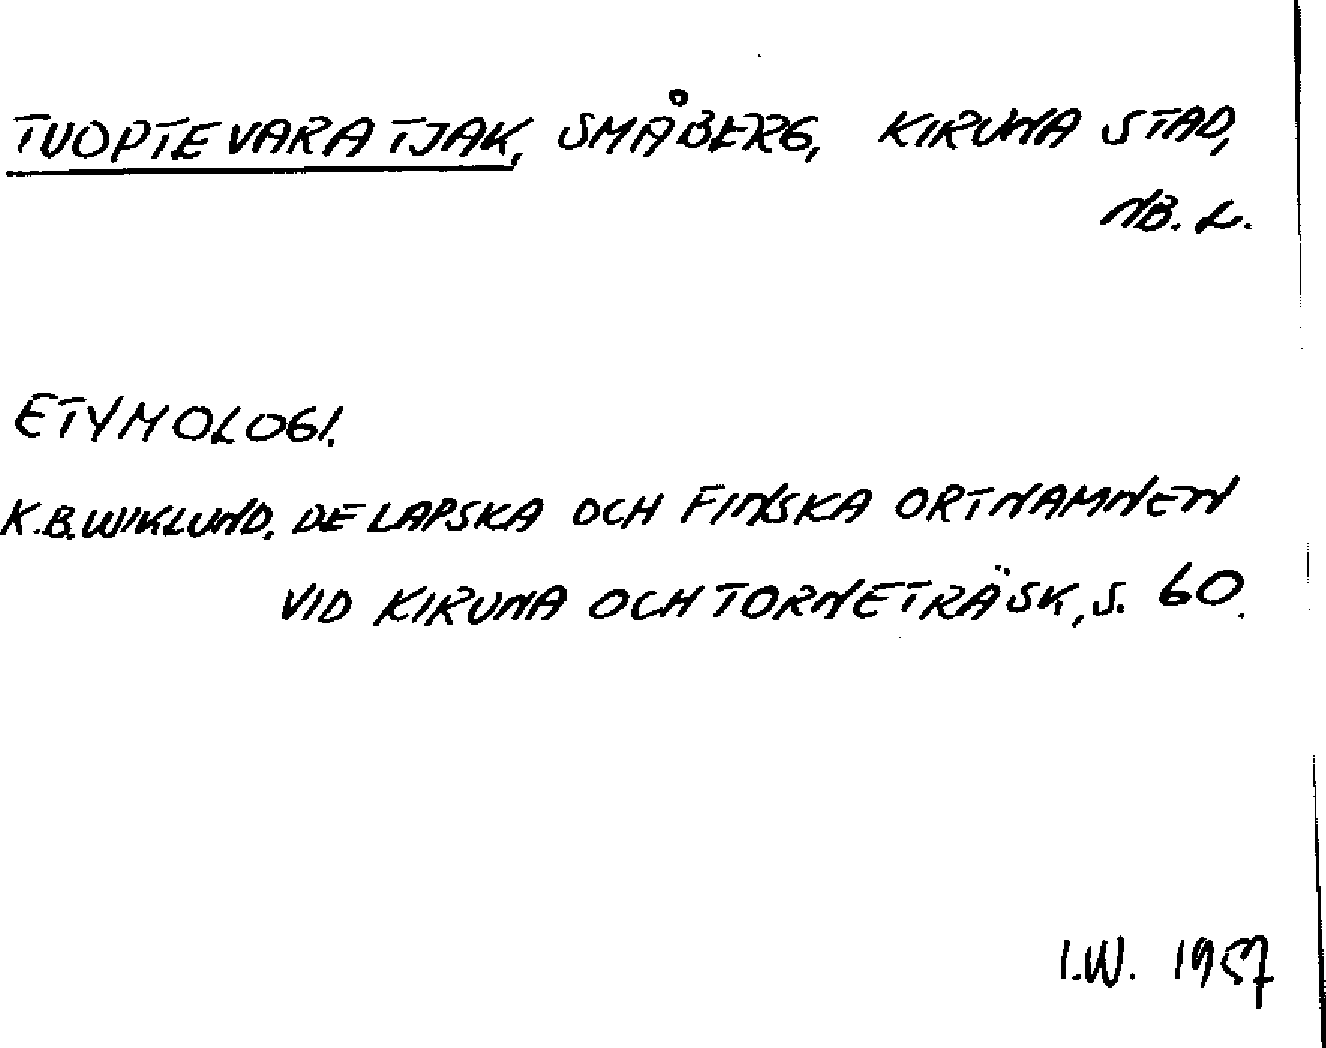 TUOPTEVARATJAK, SMÅBERG, KIRUNA STAD,
NB. L.
ETYMOLOGI.
K.B. WIKLUND. DE LAPSKA OCH FINSKA ORTNAMNEN
VID KIRUNA OCH TORNETRÄSK, S. 60.
I.W. 1957